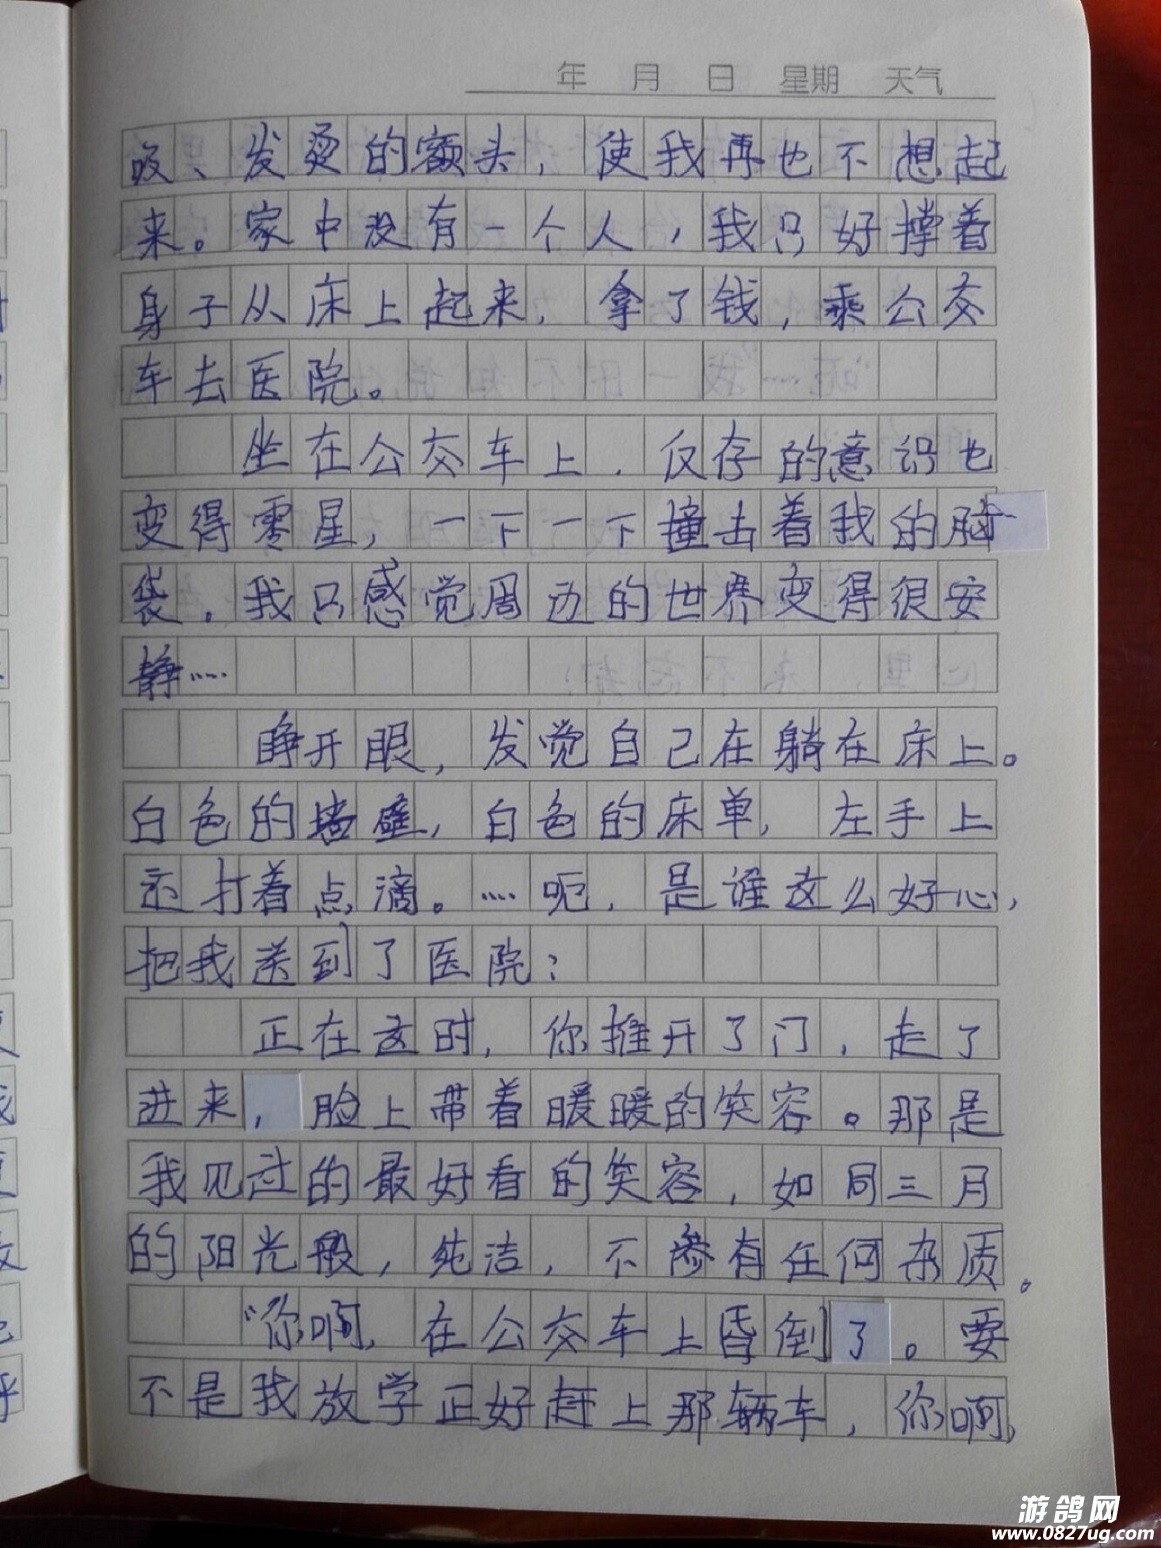 年 月 日 星期 天气
吸、发烫的额头，使我再也不想起
来。家中没有一个人，我只好撑着
身子从床上起来，拿了钱，乘公交
车去医院。
坐在公交车上，仅存的意识也
变得零星，一下一下撞击着我的脑
袋。我只感觉周边的世界变得很安
静……
睁开眼，发觉自己在躺在床上。
白色的墙壁，白色的床单，左手上
还打着点滴。……呃，是谁这么好心，
把我送到了医院？
正在这时，你推开了门，走了
进来，脸上带着暖暖的笑容。那是
我见过的最好看的笑容，如同三月
的阳光般，纯洁，不参有任何杂质。
“你啊，在公交车上昏倒了。要
不是我放学正好赶上那辆车，你啊，
游鸽网
www.0827ug.com